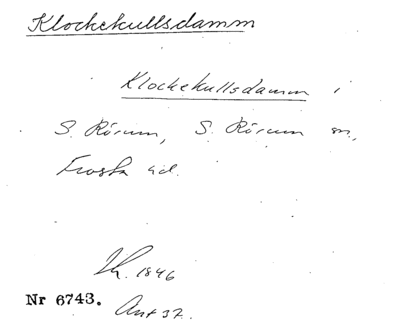 Klockekullsdamm
Klockekullsdamm i
S. Rörum, S. Rörum sn,
Frosta hd.
1846
Nr 6743. Ant 37.